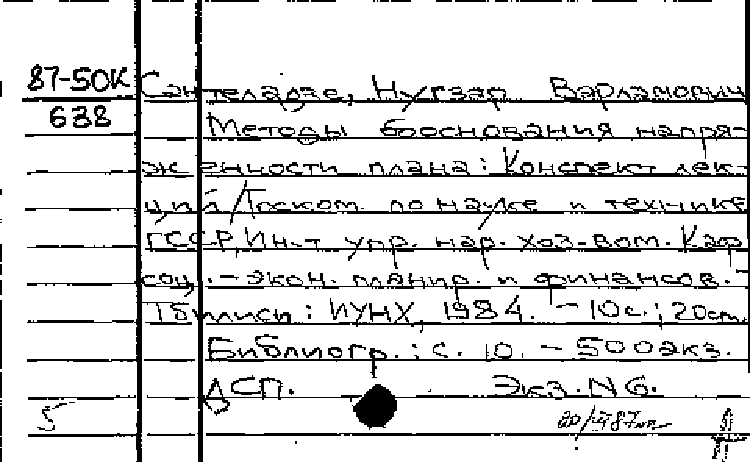 87-50К Сантеладзе, Нугзар Варламович
638 Методы боснования напря-
жённости плана: Конспект лек-
ций/Госком. по науке и технике
ГССР, Ин-т упр. нар. хоз-вом. Каф.
соц.-экон. планир. и финансов.-
Тбилиси: ИУНХ, 1984. - 10с.; 20см.
Библиогр.: с. 10. - 500экз.
ДСП. Экз.N6.
5